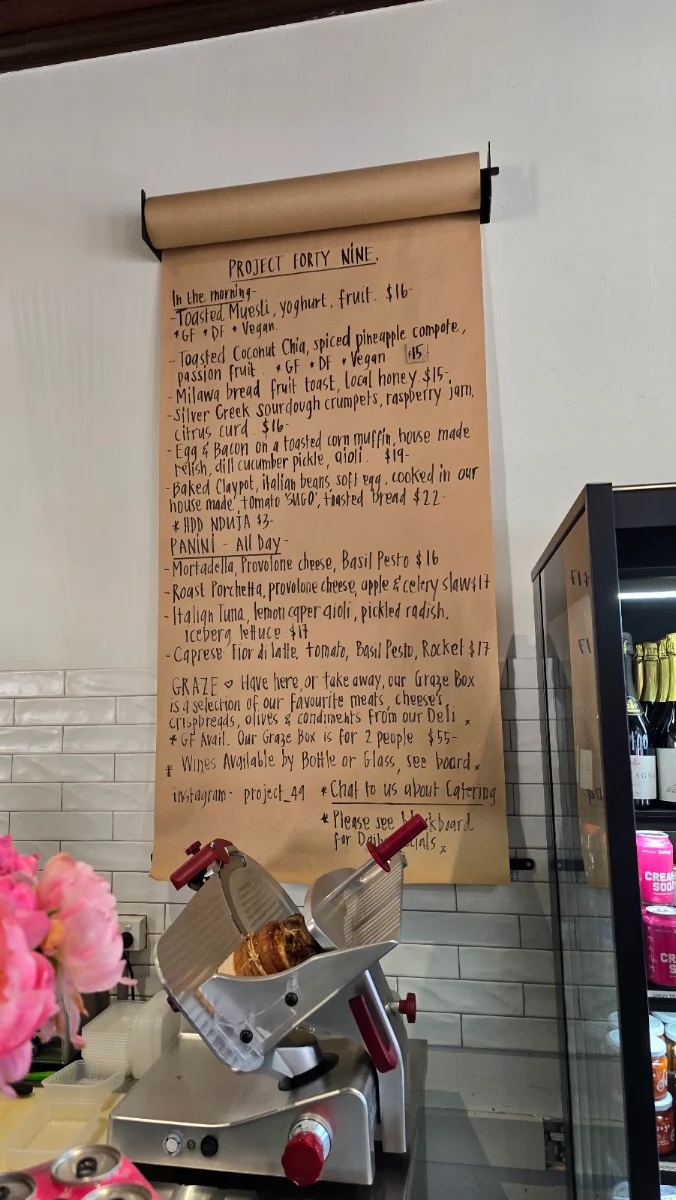 PROJECT FORTY NINE.
In the morning-
-Toasted Muesli, yoghurt, fruit. $16-
*GF *DF *Vegan.
-Toasted Coconut Chia, spiced pineapple compote,
passion fruit. *GF *DF *Vegan $15-
-Milawa bread fruit toast, local honey.$15-
-Silver Creek sourdough crumpets, raspberry jam,
citrus curd. $16-
-Egg & Bacon on a toasted corn muffin, house made
relish, dill cucumber pickle, aioli. $19-
-Baked Claypot, italian beans, soft egg, cooked in our
house made, tomato 'SUGO', toasted bread $22-
*ADD NDUJA $3-
PANINI - All Day-
-Mortadella, Provolone cheese, Basil Pesto $16
-Roast Porchetta, provolone cheese, apple & celery slaw$17
-Italian Tuna, lemon caper aioli, pickled radish,
iceberg lettuce $17
-Caprese Fior di latte, tomato, Basil Pesto, Rocket $17
GRAZE ♡ Have here, or take away, our Graze Box
is a selection of our favourite meats, cheese's,
crispbreads, olives & condiments from our Deli x
*GF Avail. Our Graze Box is for 2 people $55-
* Wines Available by Bottle or Glass, see board x
instagram- project_49 *Chat to us about Catering
*Please see
for
CREA
SOD
CR
S